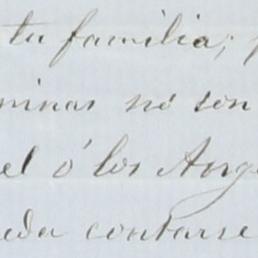 tu familia;
minas no son
el ó los Ang
eda contarse